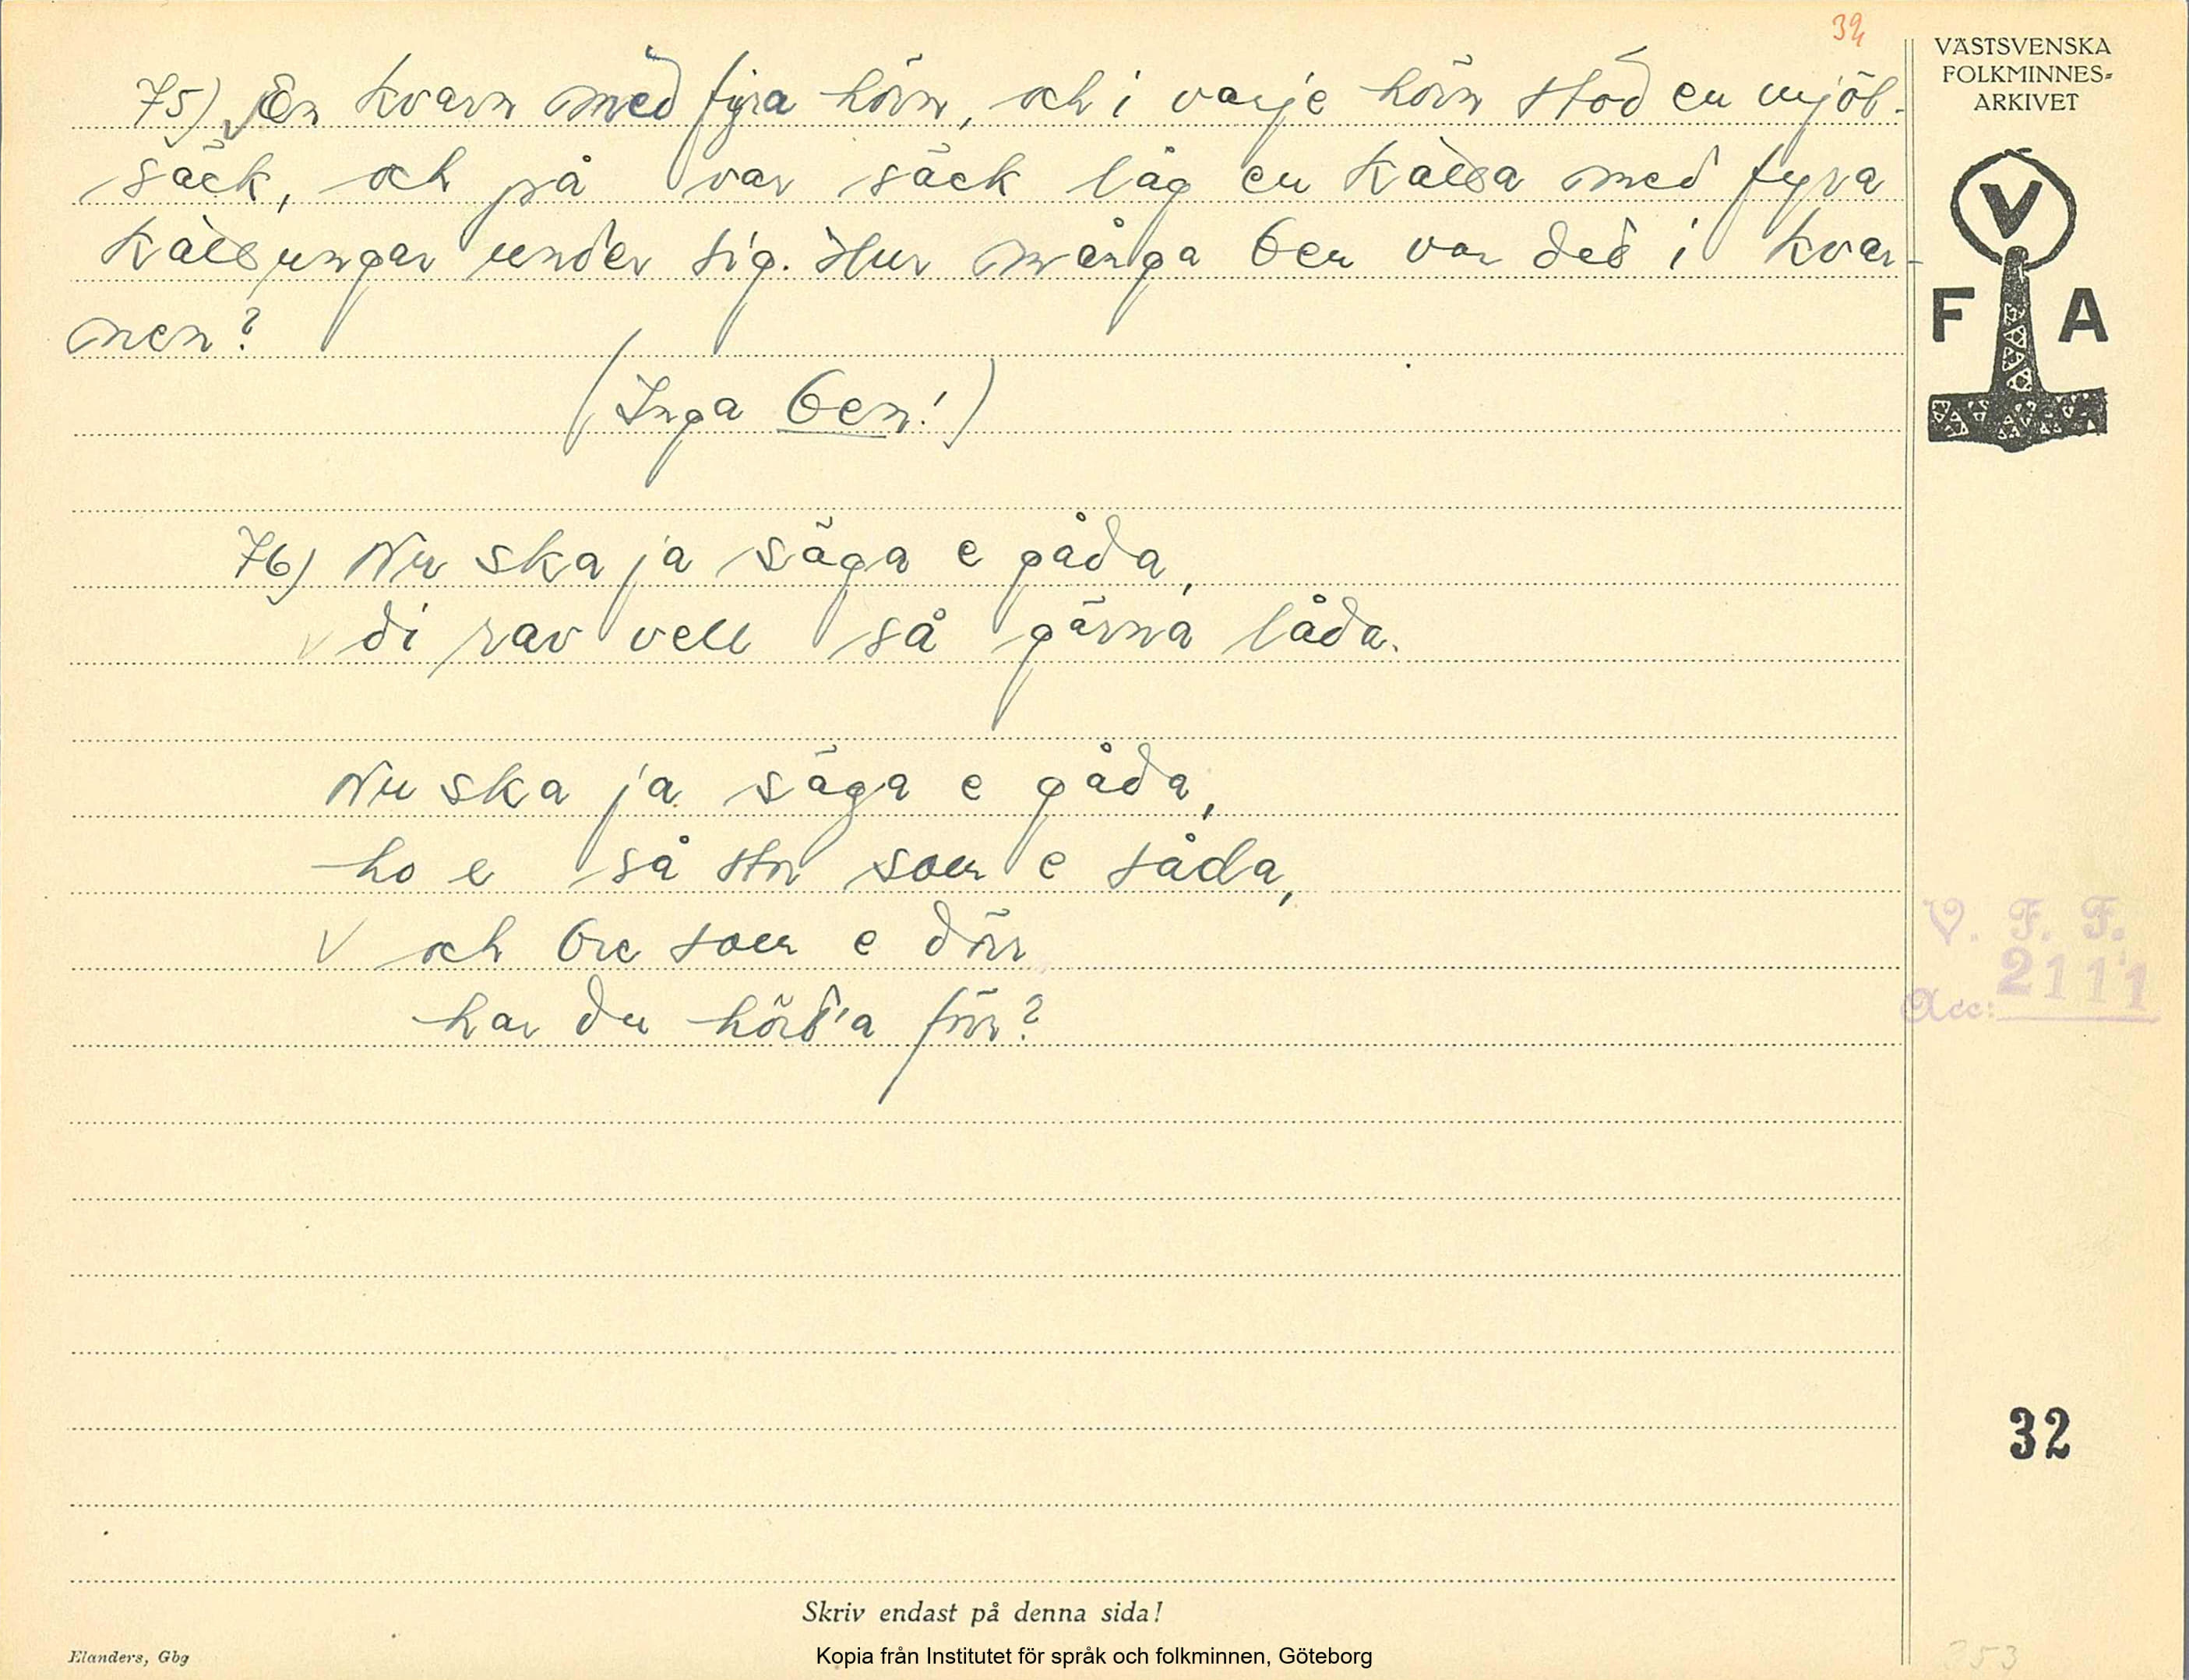 32
VÄSTSVENSKA
FOLKMINNES=
ARKIVET
V
F A
75) En kvarn med fyra hörn, och i varje hörn stod en mjöl-
säck, och på var säck låg en katta med fyra
kattungar under sig. Hur många ben var det i kvar-
nen?
(Inga ben!)
76) Nu ska ja säga e gåda,
di rav vell så gärna låda.
Nu ska ja säga e gåda,
ho e så stor som e såda,
V och bre som e dörr
har du hört'a förr?
V. F. F.
Acc: 2111
32
Skriv endast på denna sida!
Elanders, Gbg
Kopia från Institutet för språk och folkminnen, Göteborg
353